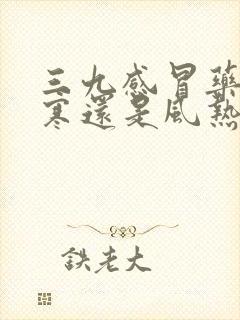 三九感冒藥
寒還是風熱
鉄老大